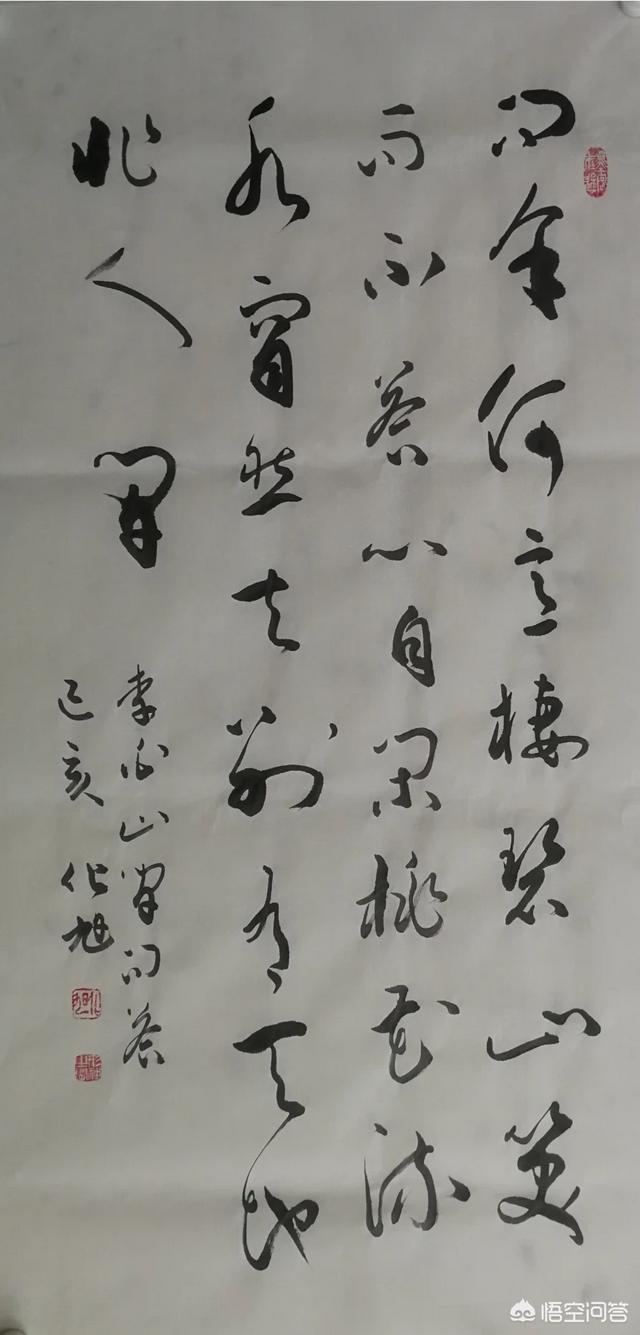 问余何意棲碧山笑
而不荅心自闲桃花流
水窅然去别有天地
非人间
李白山间问荅
己亥 化旭
悟空问答